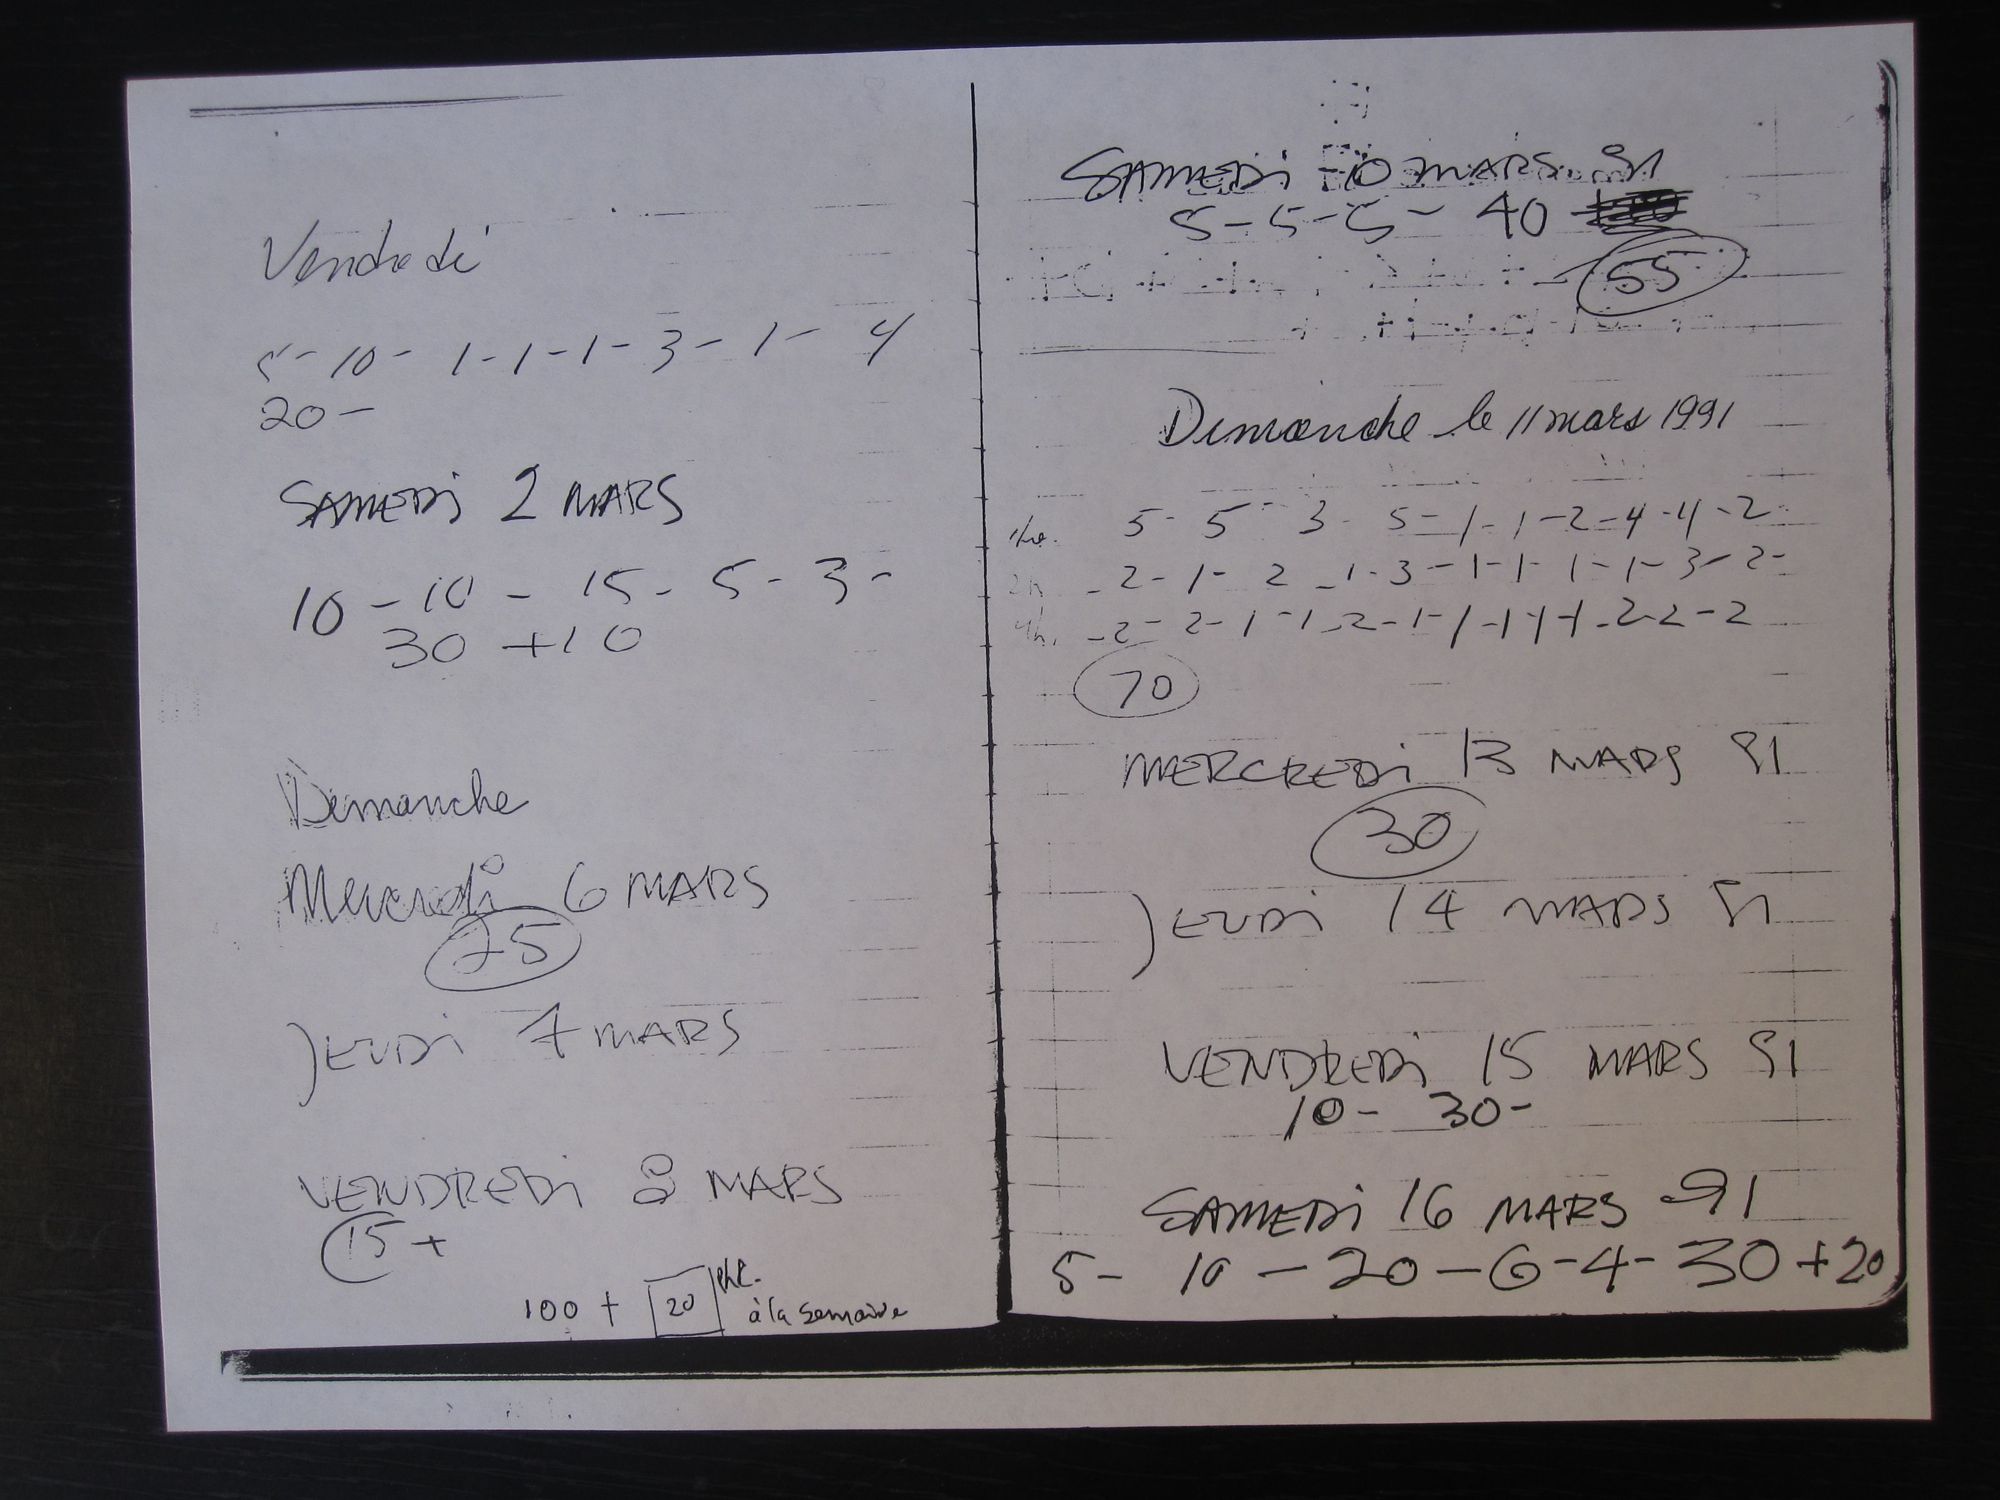 Vendredi
5 - 10 - 1 - 1 - 1 - 3 - 1 - 4
20 -
SAMEDi 2 MARS
10 - 10 - 15 - 5 - 3 -
30 + 10
Dimanche
Mercredi 6 MARS
25
JEUDi 7 MARS
VENDREDi 8 MARS
15 +
100 + 20
à la semaine
SAMEDi 10 MARS 91
5 - 5 - 5 - 40
55
Dimanche le 11 mars 1991
5 - 5 - 3 - 5 - 1 - 1 - 2 - 4 - 4 - 2
- 2 - 1 - 2 - 1 - 3 - 1 - 1 - 1 - 1 - 3 - 2 -
- 2 - 2 - 1 - 1 - 2 - 1 - 1 - 1 - 1 - 1 - 2 - 2 - 2
70
MERCREDi 13 MARS 91
30
JEUDi 14 MARS 91
VENDREDi 15 MARS 91
10 - 30 -
SAMEDi 16 MARS 91
5 - 10 - 20 - 6 - 4 - 30 + 20